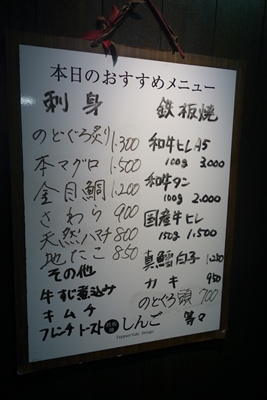 本日のおすすめメニュー
刺身
のどぐろ炙り 1.300
本マグロ 1.500
金目鯛 1.200
さわら 900
天然ハマチ 800
地だこ 850
その他
牛すじ煮込み
キムチ
フレンチトースト
鉄板焼
和牛ヒレ A5
100g 3.000
和牛タン
100g 2.000
国産牛ヒレ
150g 1.500
真鱈白子 1.250
カキ 950
のどぐろ頭 700
等々
しんご